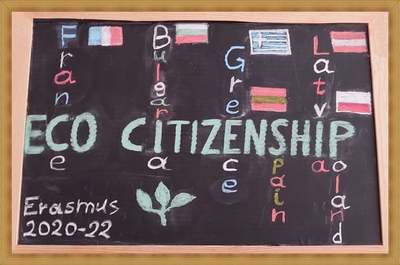 France
Bulgaria
Greece
Spain
Latvia
Poland
ECO CITIZENSHIP
Erasmus
2020-22